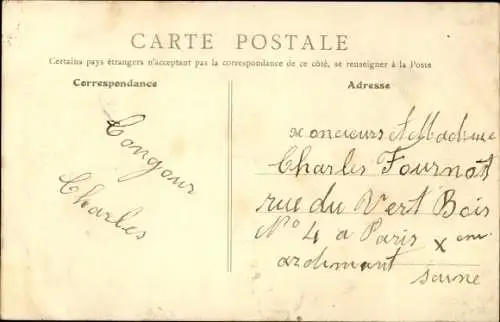 CARTE POSTALE
Certains pays étrangers n'acceptant pas la correspondance de ce côté, se renseigner à la Poste
Correspondance
Adresse
Bonjour
Charles
Moncieurs et Madame
Charles Fournot
rue du Vert Bois
No 4 a Paris X em
ardimant